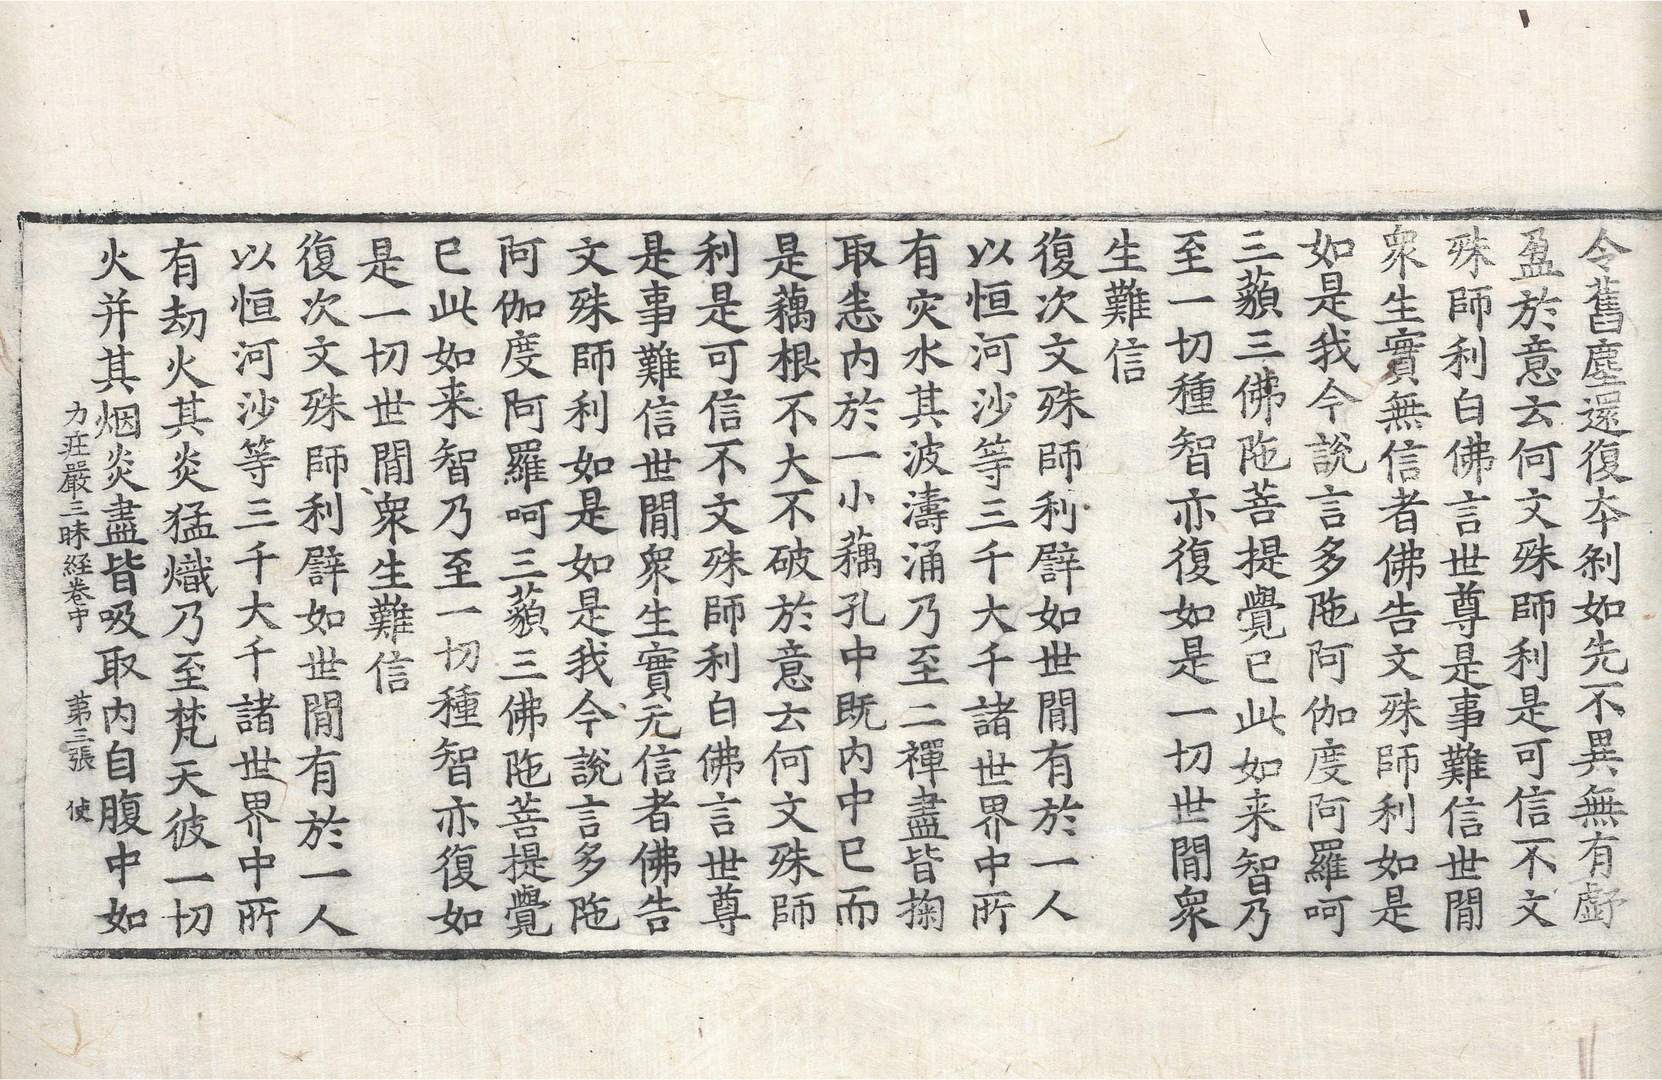 令舊塵還復本刹如先不異無有虧
盈於意云何文殊師利是可信不文
殊師利白佛言世尊是事難信世間
衆生實無信者佛告文殊師利如是
如是我今說言多陁阿伽度阿羅呵
三藐三佛陁菩提覺已此如来智乃
至一切種智亦復如是一切世間衆
生難信
復次文殊師利譬如世間有於一人
以恒河沙等三千大千諸世界中所
有灾水其波濤涌乃至二禪盡皆掬
取悉内於一小藕孔中既内中已而
是藕根不大不破於意云何文殊師
利是可信不文殊師利白佛言世尊
是事難信世間衆生實无信者佛告
文殊師利如是如是我今說言多陁
阿伽度阿羅呵三藐三佛陁菩提覺
已此如来智乃至一切種智亦復如
是一切世間衆生難信
復次文殊師利譬如世間有於一人
以恒河沙等三千大千諸世界中所
有劫火其炎猛熾乃至梵天彼一切
火并其烟炎盡皆吸取内自腹中如
力莊嚴三昧経卷中 第三張 使